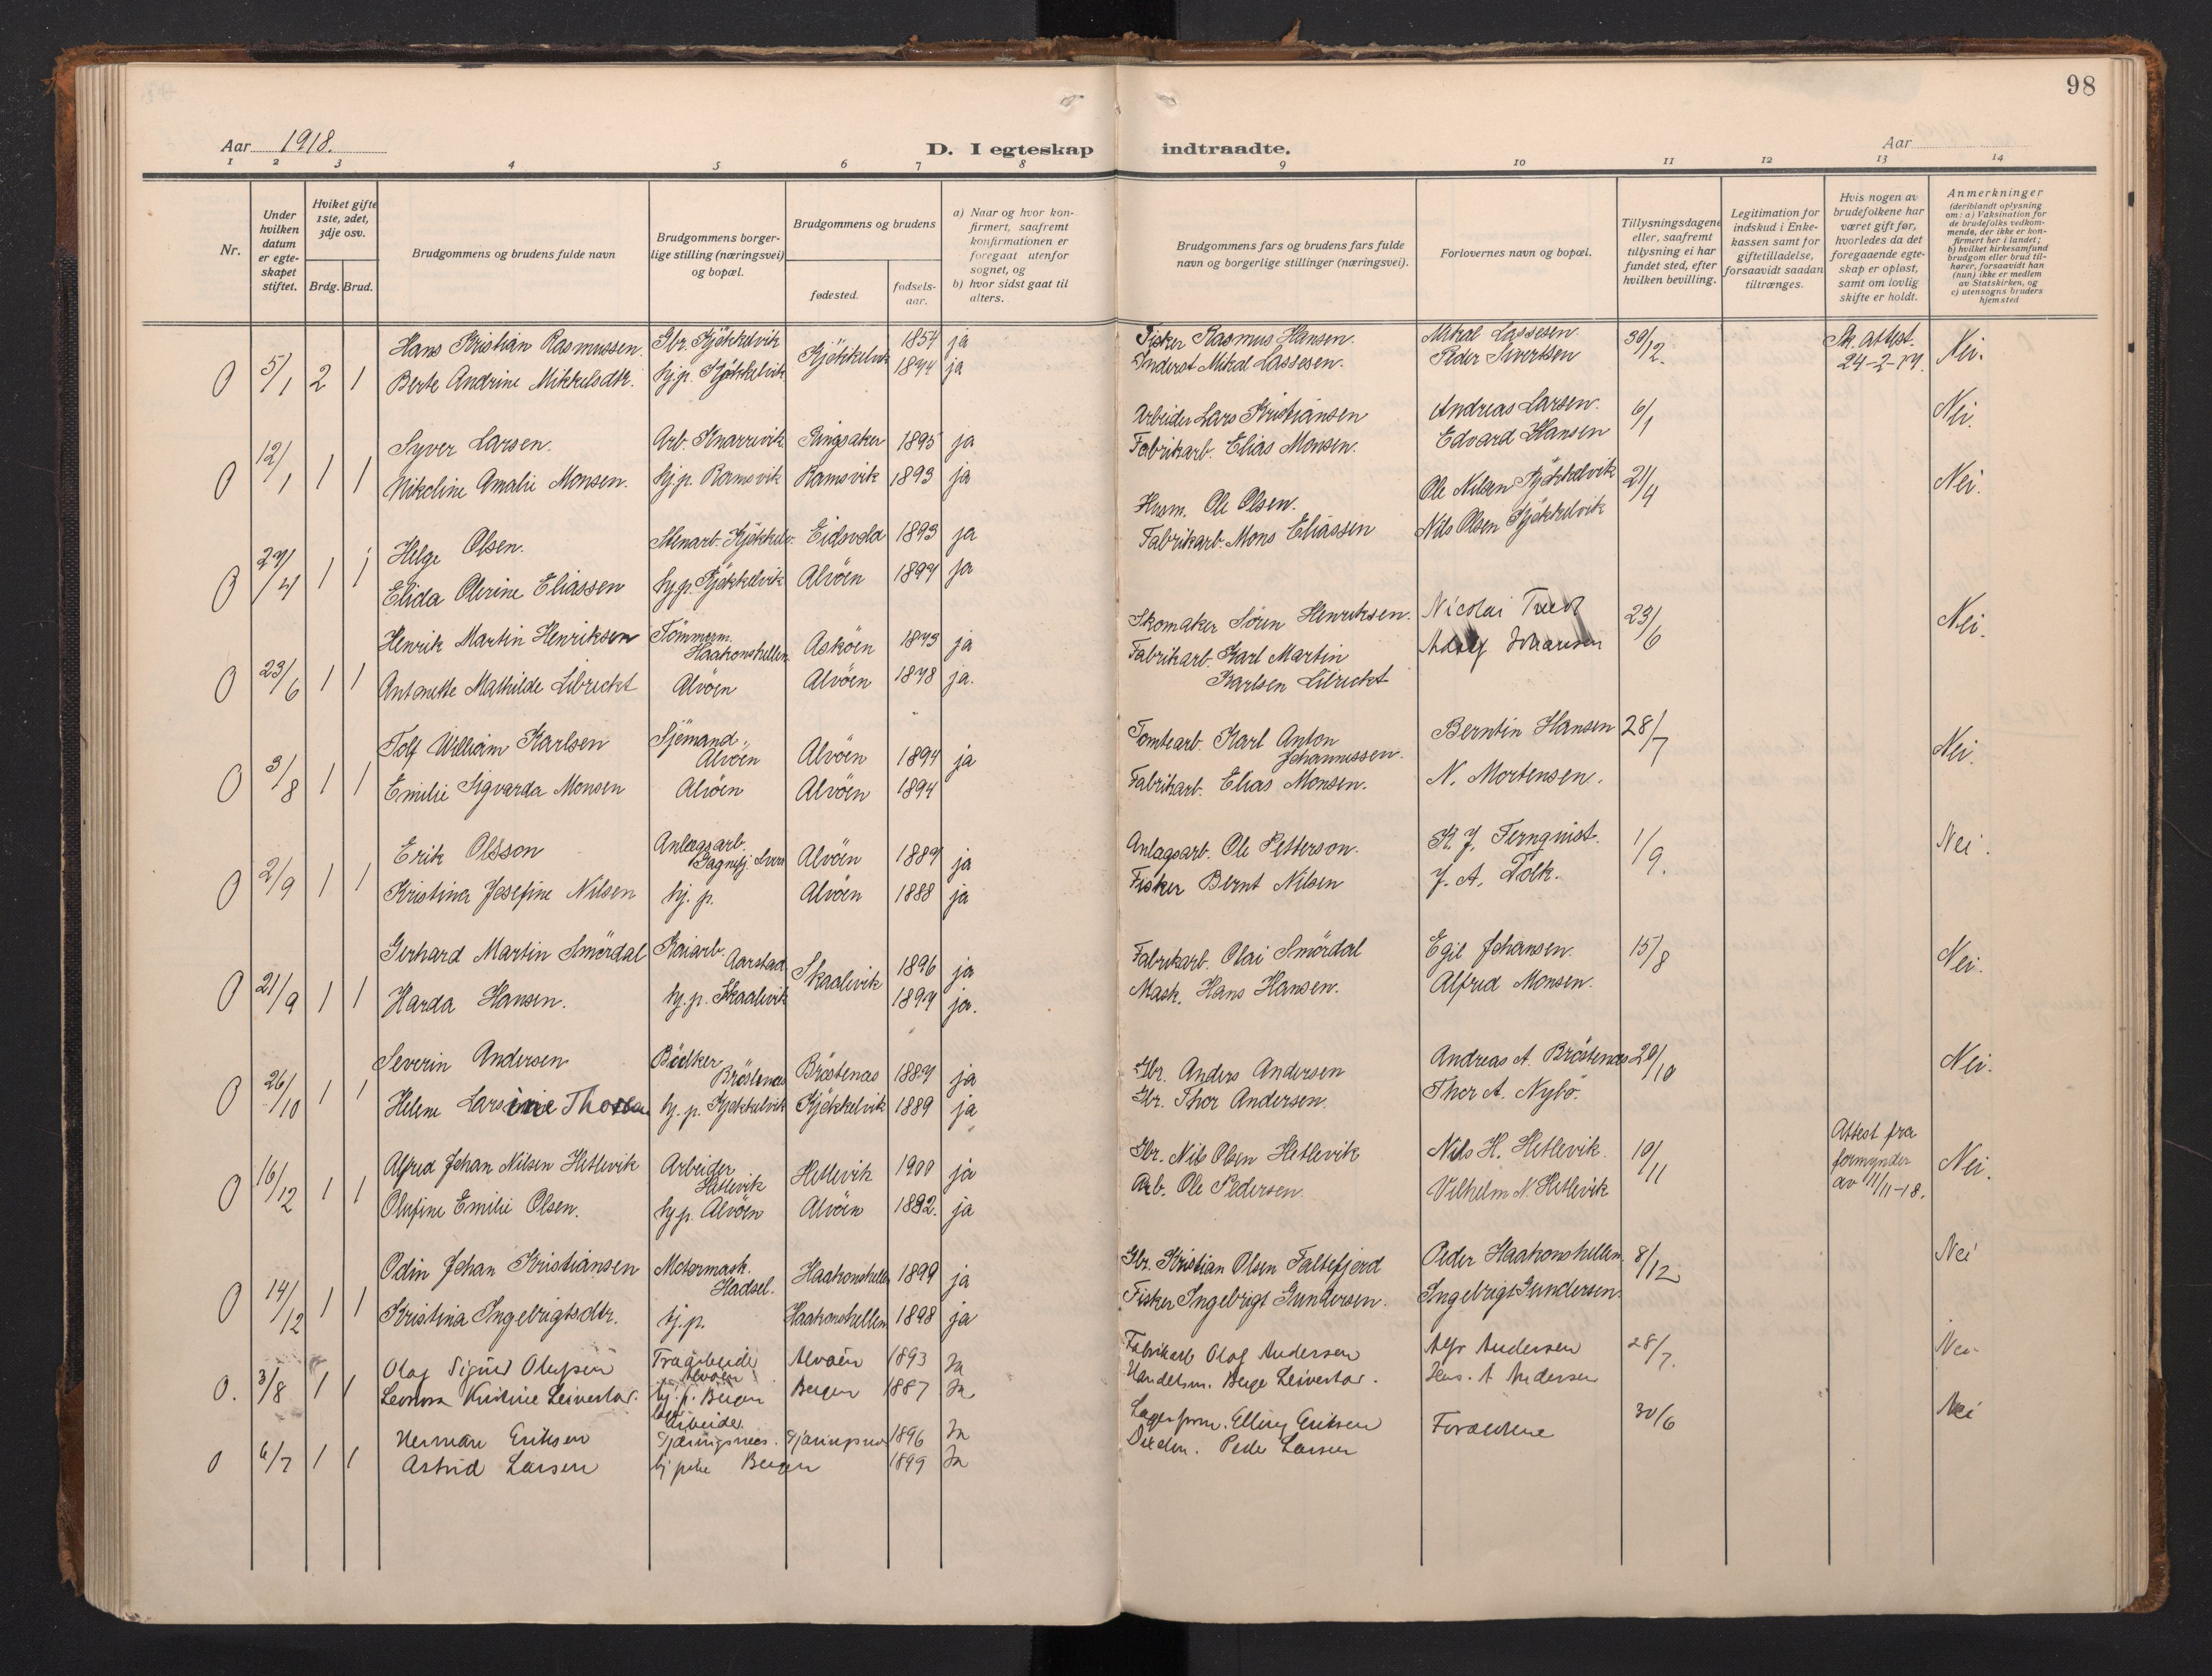 98
Aar 1918.
D. I egteskap indtraadte.
Aar
1 2 3 4 5 6 7 8 9 10 11 12 13 14
Nr.
Under hvilken datum er egteskapet stiftet.
Hviket gifte 1ste, 2det, 3dje osv.
Brdg. Brud.
Brudgommens og brudens fulde navn
Brudgommens borgerlige stilling (næringsvei) og bopæl.
Brudgommens og brudens
fødested. fødselsaar.
a) Naar og hvor konfirmert, saafremt konfirmationen er foregaat utenfor sognet, og
b) hvor sidst gaat til alters.
Brudgommens fars og brudens fars fulde navn og borgerlige stillinger (næringsvei).
Forlovernes navn og bopæl.
Tillysningsdagene eller, saafremt tillysning ei har fundet sted, efter hvilken bevilling.
Legitimation for indskud i Enkekassen samt for giftetilladelse, forsaavidt saadan tiltrænges.
Hvis nogen av brudefolkene har været gift før, hvorledes da det foregaaende egteskap er opløst, samt om lovlig skifte er holdt.
Anmerkninger (deriblandt oplysning om: a) Vaksination for de brudefolks vedkommende, der ikke er konfirmert her i landet; b) hvilket kirkesamfund brudgom eller brud tilhører, forsaavidt han (hun) ikke er medlem av Statskirken, og c) utensogns bruders hjemsted
Hans Kristian Rasmussen. Gbr. Kjøkkelvik Kjøkkelvik 1854 ja Fisker Rasmus Hansen. Mikal Lassesen. 30/12. Sk. attest. 24-2-17. Nei.
O 5/1 2 1 Berte Andrine Mikkelsdtr. hj.p. Kjøkkelvik 1874 ja Inderst Mikal Lassesen. Peder Sivertsen
Syver Larsen. Arb. Knarrevik Ringsaker 1895 ja Arbeider Lars Kristiansen Andreas Larsen. 6/1 Nei.
O 12/1 1 1 Nikoline Amalie Monsen. hj.p. Ramsvik Ramsvik 1893 ja Fabrikarb. Elias Monsen. Edvard Hansen
Helge Olsen. Stenarb. Kjøkkelv. Eidsvold 1893 ja Husm. Ole Olsen. Ole Nilsen Kjøkkelvik 21/4 Nei.
O 27/4 1 1 Elida Olerine Eliassen hj.p. Kjøkkelvik Alvøen 1897 ja Fabrikarb. Mons Eliassen Nils Olsen Kjøkkelvik
Henrik Martin Henriksen Tømmerm. Haakonshellen Askøen 1873 ja Skomaker Søren Henriksen. Nicolai 23/6 Nei.
O 23/6 1 1 Antonette Mathilde Librickt Alvøen Alvøen 1878 ja. Fabrikarb. Karl Martin Karlsen Librickt Johansen
Tolf William Karlsen Sjømand. Alvøen Alvøen 1894 ja Tomtearb. Karl Anton Johannessen. Berntin Hansen 28/7 Nei.
O 3/8 1 1 Emilie Sigvarda Monsen Alvöen Alvøen 1894 Fabrikarb. Elias Monsen. N. Mortensen.
Erik Olsson Anlægsarb. Alvøen 1889 ja Anlagsarb. Ole Petterson. K. J. Fernqvist. 1/9. Nei.
O 2/9 1 1 Kristina Josefine Nilsen hj. p. Alvøen 1888 ja Fisker Bernt Nilsen J. A. Dolk.
Gerhard Martin Smørdal Kaiarb. Aarstad Skaalevik 1896 ja Fabrikarb. Olai Smørdal Egil Johansen. 15/8 Nei.
O 21/9 1 1 Harda Hansen. hj.p. Skaalevik 1897 ja. Mask. Hans Hansen. Alfred Monsen.
Severin Andersen Bødker Brøstenæs Brøstenæs 1887 ja Gbr. Anders Andersen Andreas A. Brøstenæs 20/10 Nei.
O 26/10 1 1 Helene Larsine hj. p. Kjøkkelvik Kjøkkelvik 1889 ja Gbr. Thor Andersen. Thor A. Nybø.
Alfred Johan Nilsen Hetlevik Arbeider Hetlevik Hetlevik 1900 ja Gbr. Nils Olsen Hetlevik Nils H. Hetlevik. 10/11 Attest fra formynder av 11/11-18. Nei.
O 16/12 1 1 Olufine Emilie Olsen. hj.p. Alvøen Alvøen 1892. ja Arb. Ole Pedersen. Vilhelm N. Hetlevik
Odin Johan Kristiansen Motormask. Hadsel. Haakonshellen 1899 ja Gbr. Kristian Olsen Faltefjord Peder Haakonshellen 8/12 Nei
O 14/12 1 1 Kristina Ingebrigtsdtr. hj.p. Haakonshellen 1898 ja Fisker Ingebrigt Gundersen. Ingebrigt Gundersen.
Olaf Sigurd Olufsen Alvoen Alvoen 1893 Ja Fabrikarb Olaf Andersen Alfr Andersen 28/7. Nei
O. 3/8 1 1 Leonora Kristine Leivestad. hj. p. Bergen Bergen 1887 Ja Handelsm. Berge Leivestad. A Andersen
Herman Eriksen Arbeider 1896 Ja Elling Eriksen Forældrene 30/6 Nei
O 6/7 1 1 Astrid Larsen Bergen 1899 Ja Peder Larsen